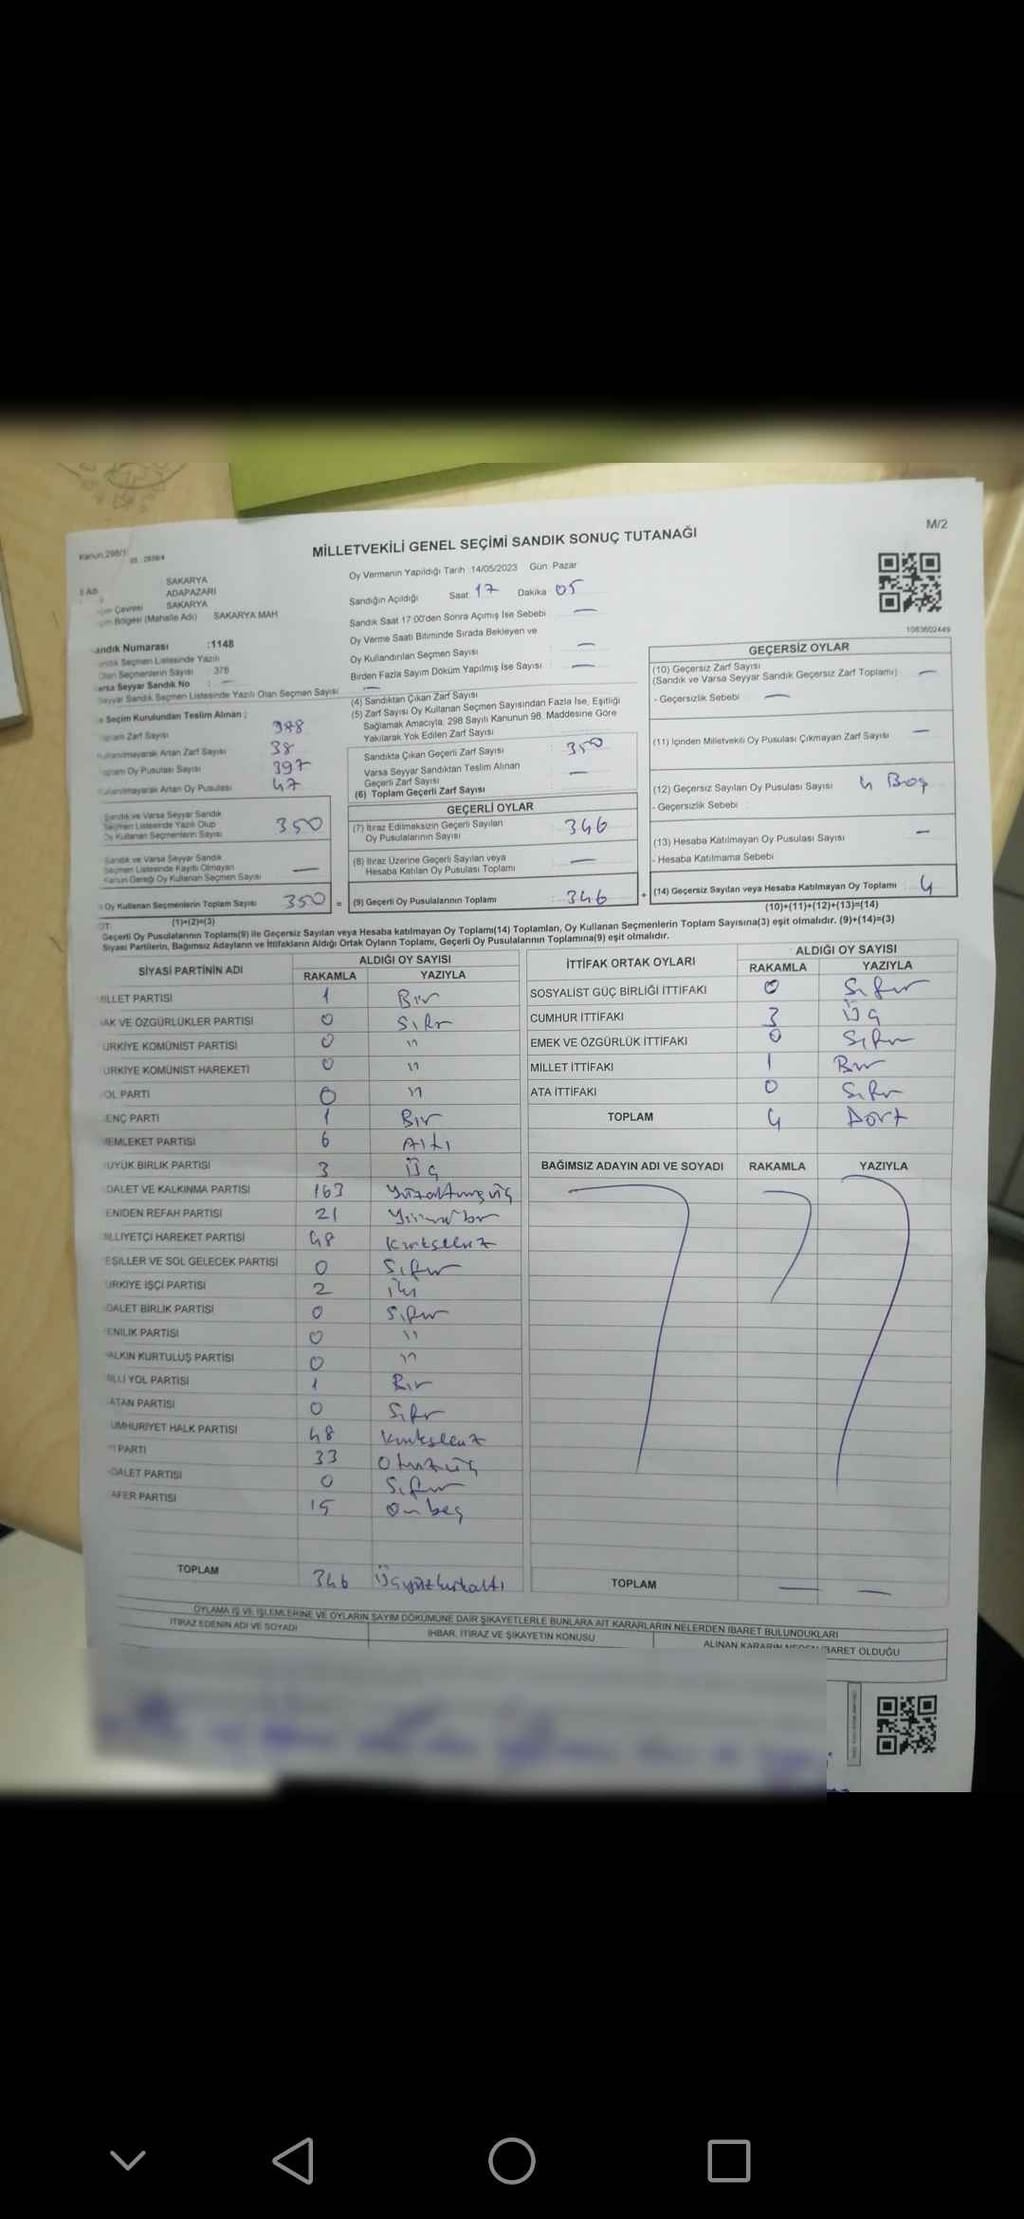 M/2
Kanun 298/1
MİLLETVEKİLİ GENEL SEÇİMİ SANDIK SONUÇ TUTANAĞI
SAKARYA
ADAPAZARI
Çevresi SAKARYA
Bölgesi (Mahalle Adı) SAKARYA MAH
Oy Vermenin Yapıldığı Tarih :14/05/2023 Gün Pazar
Sandığın Açıldığı Saat 17 Dakika 05
Sandık Saat 17 00'den Sonra Açımış İse Sebebi —
Oy Verme Saati Bitiminde Sırada Bekleyen ve
Oy Kullandırılan Seçmen Sayısı —
Birden Fazla Sayım Döküm Yapılmış İse Sayısı —
1083602449
andık Numarası :1148
Seçmen Listesinde Yazılı
Olan Seçmenlerin Sayısı 378
arsa Seyyar Sandık No : —
Seyyar Sandık Seçmen Listesinde Yazılı Olan Seçmen Sayısı —
Seçim Kurulundan Teslim Alınan :
Zarf Sayısı 388
Kullanılmayarak Artan Zarf Sayısı 38
Oy Pusulası Sayısı 397
Kullanılmayarak Artan Oy Pusulası 47
Sandık ve Varsa Seyyar Sandık
Seçmen Listesinde Yazılı Olup
Oy Kullanan Seçmenlerin Sayısı 350
Sandık ve Varsa Seyyar Sandık
Seçmen Listesinde Kayıtlı Olmayan
Kanun Gereği Oy Kullanan Seçmen Sayısı —
Oy Kullanan Seçmenlerin Toplam Sayısı 350 =
(1)+(2)=(3)
(4) Sandıktan Çıkan Zarf Sayısı
(5) Zarf Sayısı Oy Kullanan Seçmen Sayısından Fazla İse, Eşitliği
Sağlamak Amacıyla, 298 Sayılı Kanunun 98. Maddesine Göre
Yakılarak Yok Edilen Zarf Sayısı
Sandıkta Çıkan Geçerli Zarf Sayısı 350
Varsa Seyyar Sandıktan Teslim Alınan
Geçerli Zarf Sayısı —
(6) Toplam Geçerli Zarf Sayısı
GEÇERLİ OYLAR
(7) İtiraz Edilmeksizin Geçerli Sayılan
Oy Pusulalarının Sayısı 346
(8) İtiraz Üzerine Geçerli Sayılan veya
Hesaba Katılan Oy Pusulası Toplamı —
(9) Geçerli Oy Pusulalarının Toplamı 346 +
GEÇERSİZ OYLAR
(10) Geçersiz Zarf Sayısı
(Sandık ve Varsa Seyyar Sandık Geçersiz Zarf Toplamı) —
- Geçersizlik Sebebi —
(11) İçinden Milletvekili Oy Pusulası Çıkmayan Zarf Sayısı —
(12) Geçersiz Sayılan Oy Pusulası Sayısı 4 Boş
- Geçersizlik Sebebi
(13) Hesaba Katılmayan Oy Pusulası Sayısı —
- Hesaba Katılmama Sebebi
(14) Geçersiz Sayılan veya Hesaba Katılmayan Oy Toplamı 4
(10)+(11)+(12)+(13)=(14)
Geçerli Oy Pusulalarının Toplamı(9) ile Geçersiz Sayılan veya Hesaba katılmayan Oy Toplamı(14) Toplamları, Oy Kullanan Seçmenlerin Toplam Sayısına(3) eşit olmalıdır. (9)+(14)=(3)
Siyasi Partilerin, Bağımsız Adayların ve İttifakların Aldığı Ortak Oyların Toplamı, Geçerli Oy Pusulalarının Toplamına(9) eşit olmalıdır.
SİYASİ PARTİNİN ADI ALDIĞI OY SAYISI
RAKAMLA YAZIYLA
İLLET PARTİSİ 1 Bir
AK VE ÖZGÜRLÜKLER PARTİSİ 0 Sıfır
ÜRKİYE KOMÜNİST PARTİSİ 0 "
ÜRKİYE KOMÜNİST HAREKETİ 0 "
OL PARTİ 0 "
ENÇ PARTİ 1 Bir
EMLEKET PARTİSİ 6 Altı
ÜYÜK BİRLİK PARTİSİ 3 Üç
DALET VE KALKINMA PARTİSİ 163 Yüzaltmışüç
ENİDEN REFAH PARTİSİ 21 Yirmibir
İLLİYETÇİ HAREKET PARTİSİ 48 Kırksekiz
EŞİLLER VE SOL GELECEK PARTİSİ 0 Sıfır
ÜRKİYE İŞÇİ PARTİSİ 2 iki
DALET BİRLİK PARTİSİ 0 Sıfır
ENİLİK PARTİSİ 0 "
ALKIN KURTULUŞ PARTİSİ 0 "
İLLİ YOL PARTİSİ 1 Bir
ATAN PARTİSİ 0 Sıfır
UMHURİYET HALK PARTİSİ 48 Kırksekiz
İ PARTİ 33 Otuzüç
DALET PARTİSİ 0 Sıfır
AFER PARTİSİ 15 Onbeş
TOPLAM 346 Üçyüzkırkaltı
İTTİFAK ORTAK OYLARI ALDIĞI OY SAYISI
RAKAMLA YAZIYLA
SOSYALİST GÜÇ BİRLİĞİ İTTİFAKI 0 Sıfır
CUMHUR İTTİFAKI 3 Üç
EMEK VE ÖZGÜRLÜK İTTİFAKI 0 Sıfır
MİLLET İTTİFAKI 1 Bir
ATA İTTİFAKI 0 Sıfır
TOPLAM 4 Dört
BAĞIMSIZ ADAYIN ADI VE SOYADI RAKAMLA YAZIYLA
TOPLAM — —
OYLAMA İŞ VE İŞLEMLERİNE VE OYLARIN SAYIM DÖKÜMÜNE DAİR ŞİKAYETLERLE BUNLARA AİT KARARLARIN NELERDEN İBARET BULUNDUKLARI
İTİRAZ EDENİN ADI VE SOYADI İHBAR, İTİRAZ VE ŞİKAYETİN KONUSU ALINAN KARARIN NEDEN İBARET OLDUĞU